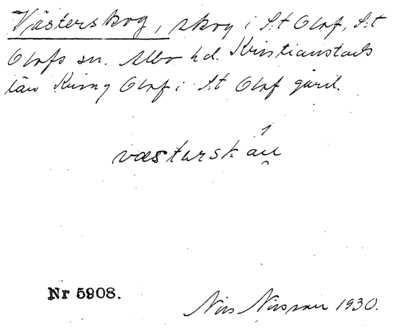 Västerskog, skog i S:t Olof, S:t
Olofs sn. Albo hd. Kristianstads
län Kung Olof i S:t Olof gård.
væstərskåu
Nr 5908.
Nils Nilsson 1930.